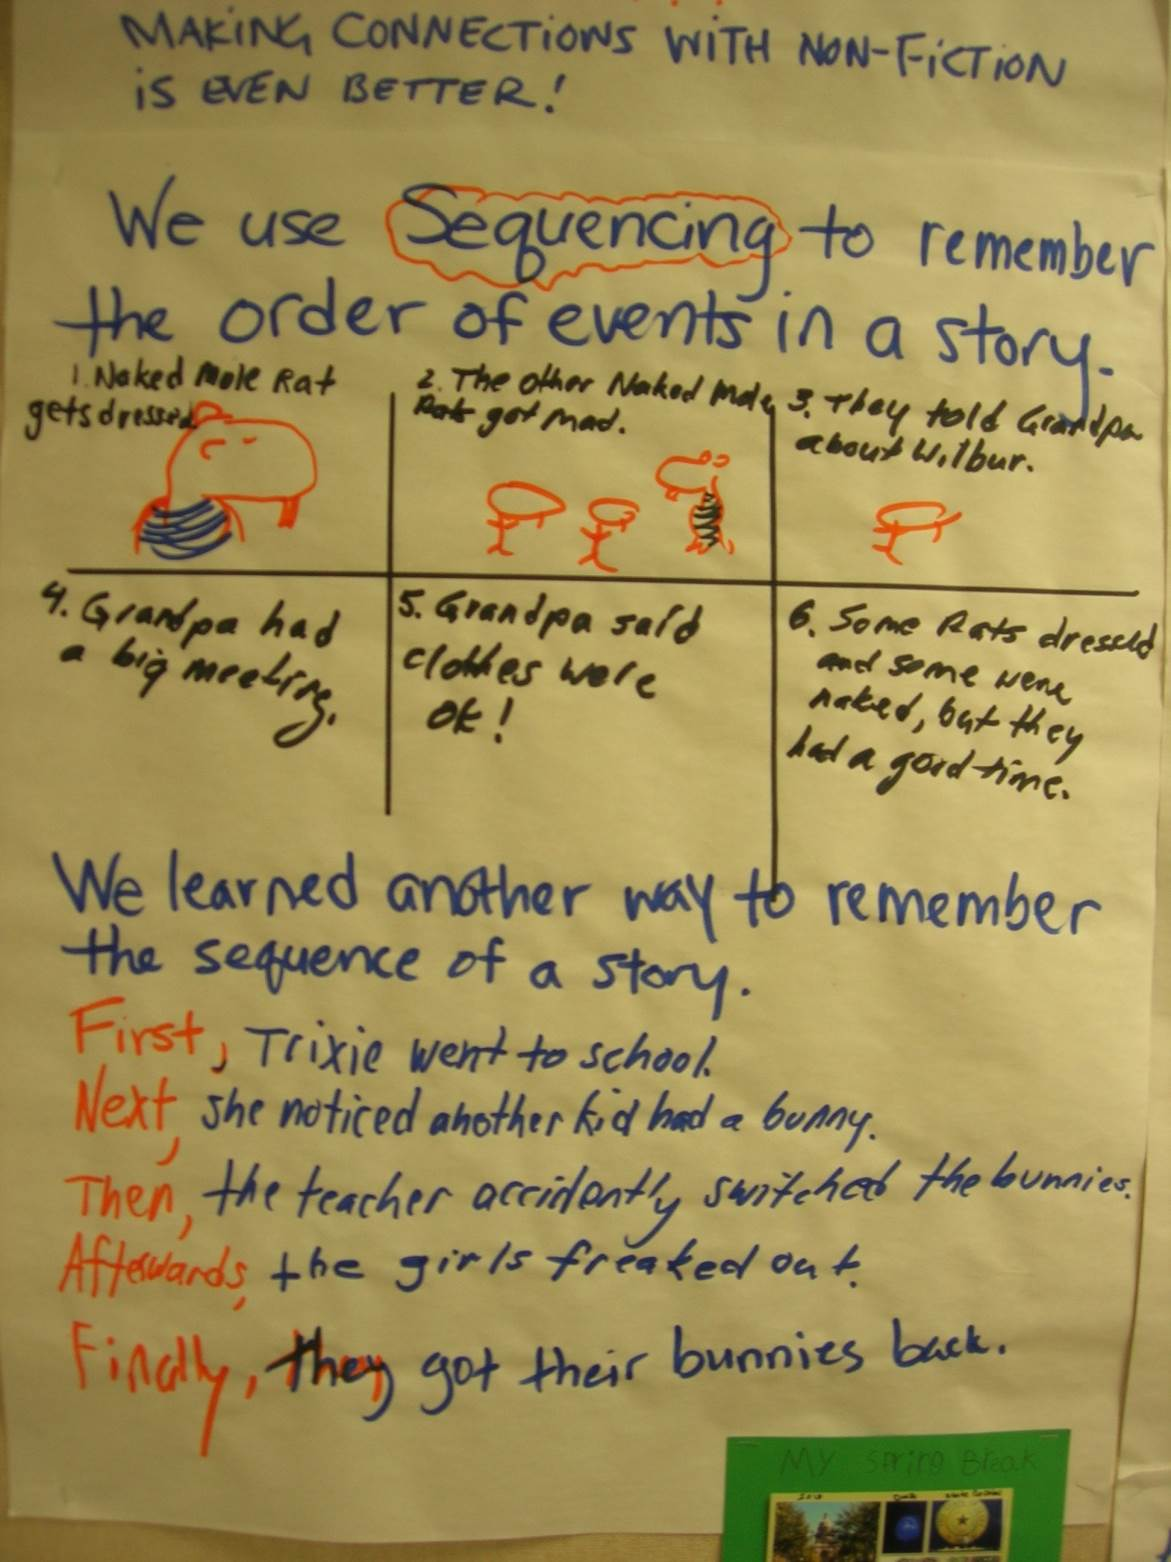 MAKING CONNECTIONS WITH NON-FICTION
IS EVEN BETTER!
We use Sequencing to remember
the order of events in a story.
1. Naked Mole Rat
gets dressed
2. The other Naked Mole
Rats got mad.
3. They told Grandpa
about Wilbur.
4. Grandpa had
a big meeting.
5. Grandpa said
clothes were
ok!
6. Some Rats dressed
and some were
naked, but they
had a good time.
We learned another way to remember
the sequence of a story.
First, Trixie went to school.
Next, she noticed another kid had a bunny.
Then, the teacher accidently switched the bunnies.
Afterwards, the girls freaked out.
Finally, they got their bunnies back.
My Spring Break